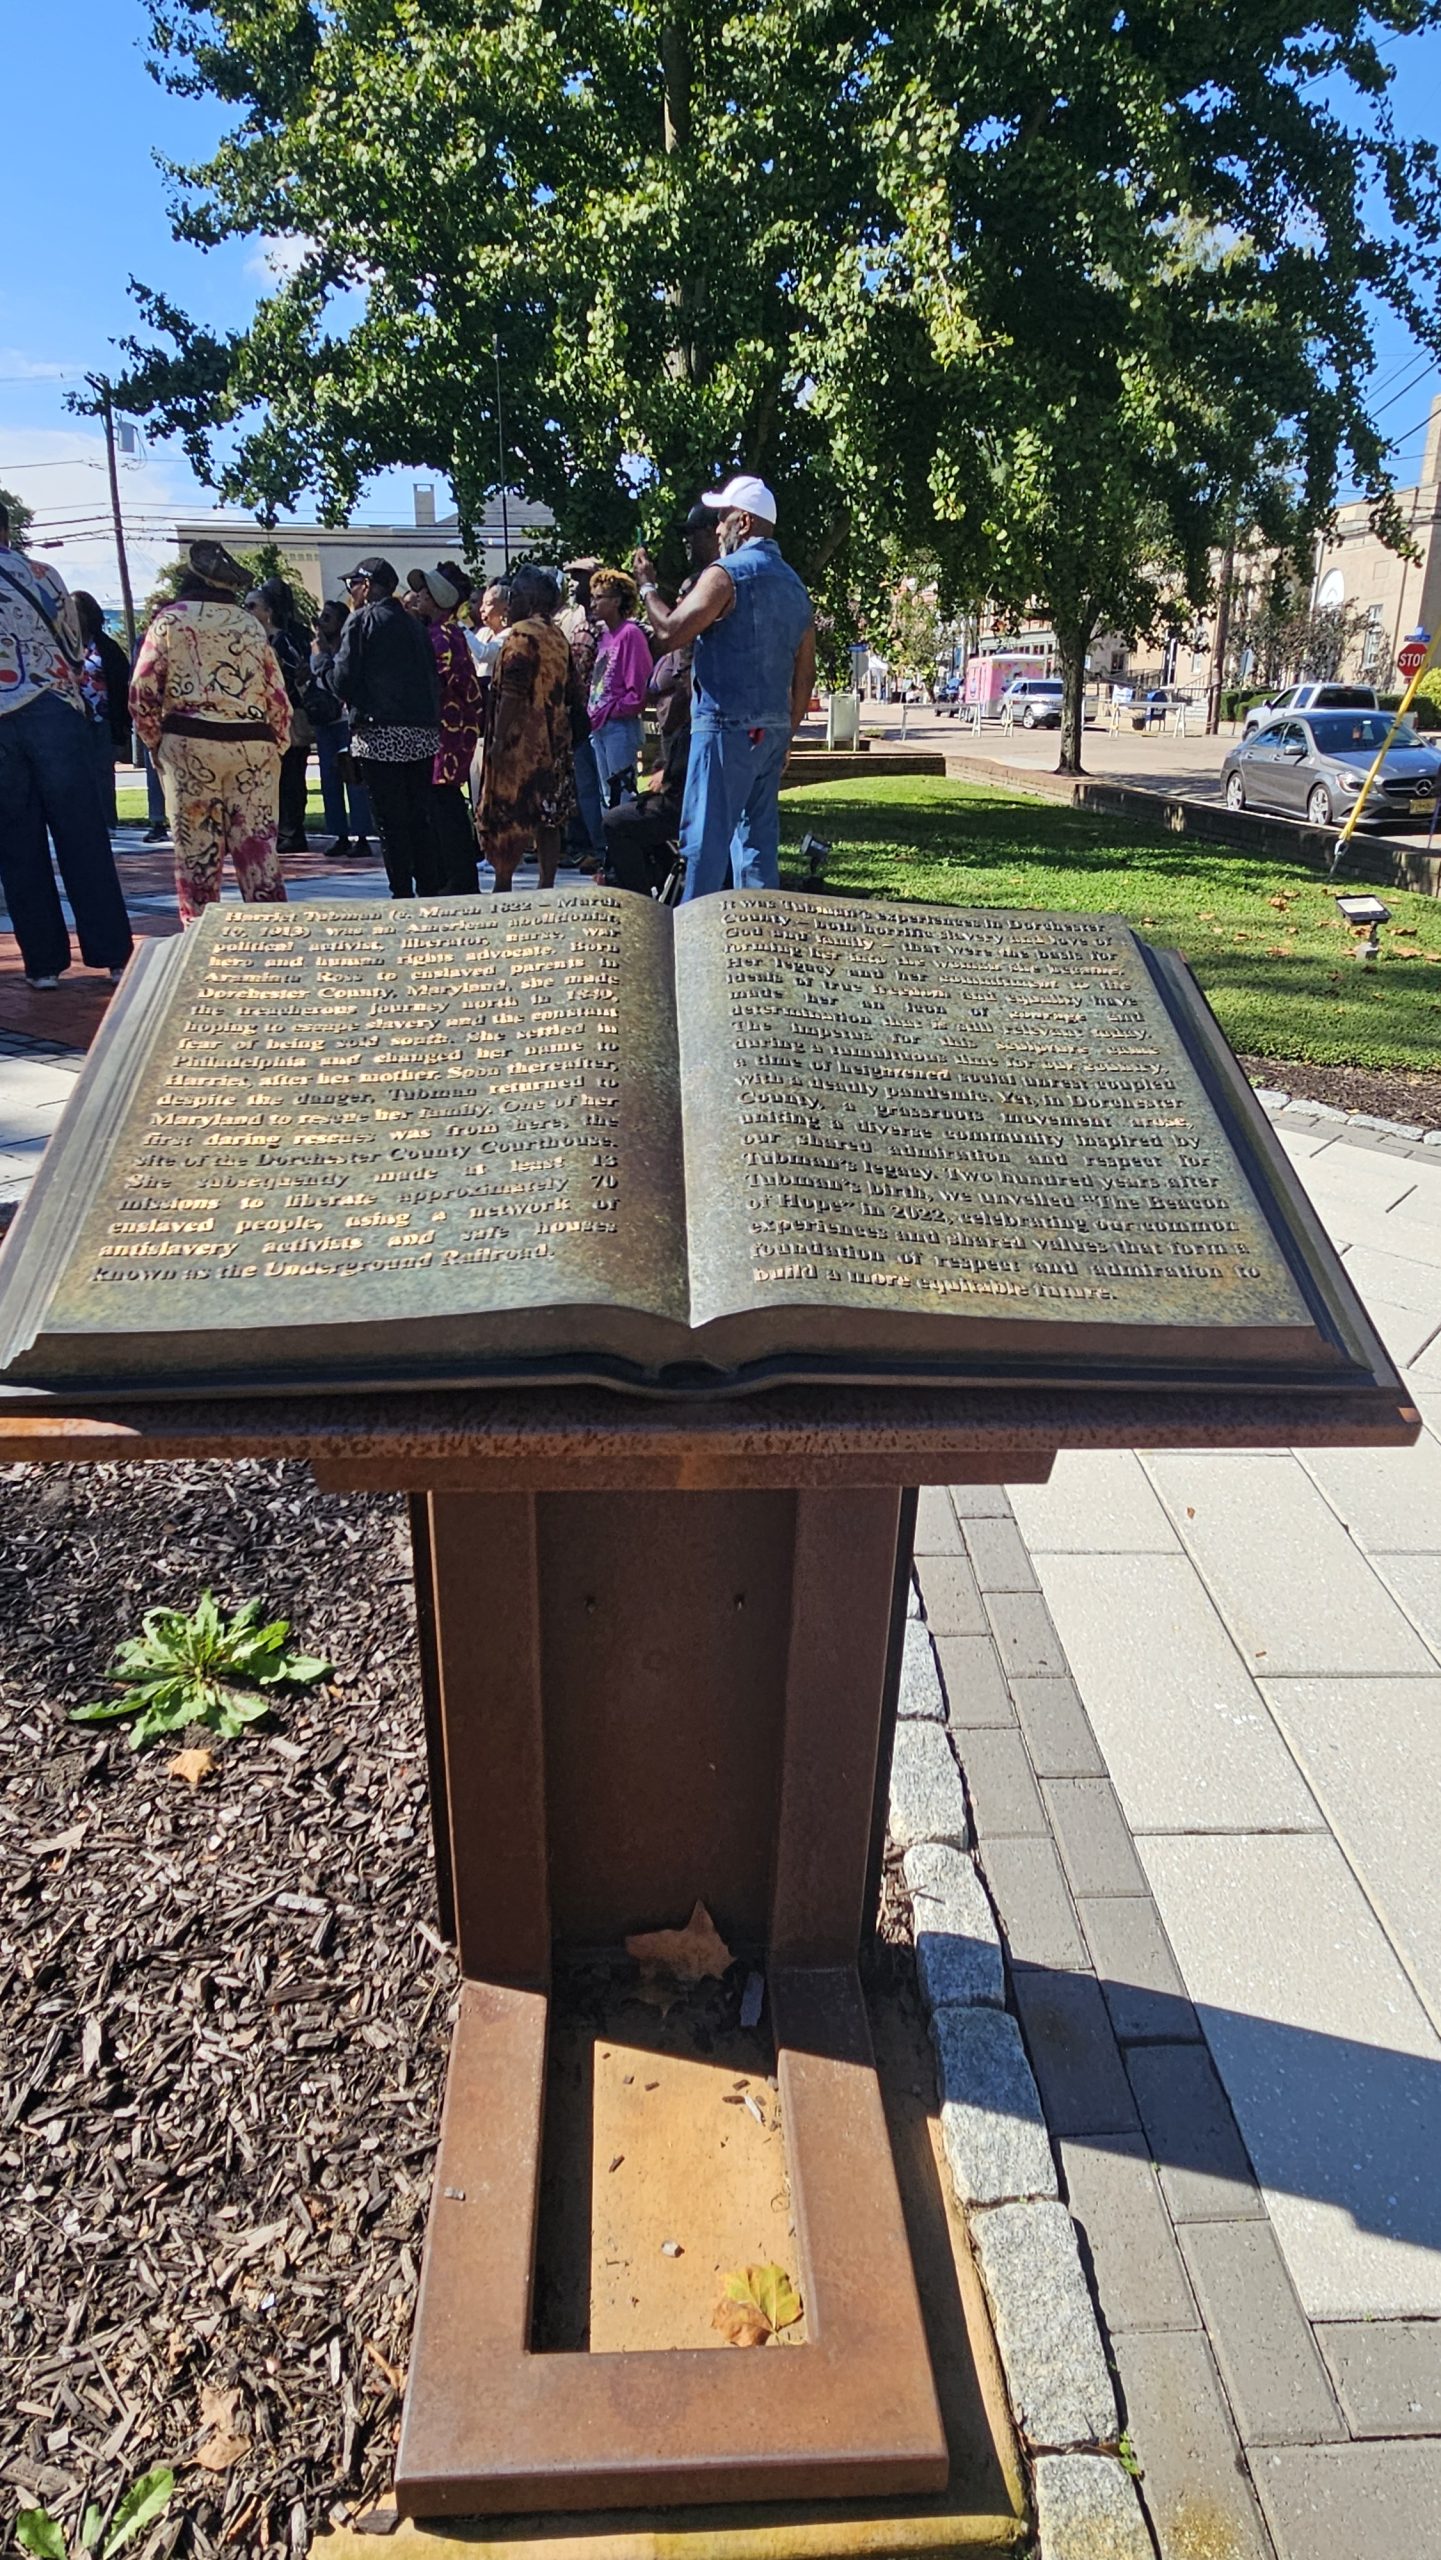 Harriet Tubman (c. March 1822 – March
10, 1913) was an American abolitionist,
political activist, liberator, nurse, war
hero and human rights advocate. Born
Araminta Ross to enslaved parents in
Dorchester County, Maryland, she made
the treacherous journey north in 1849,
hoping to escape slavery and the constant
fear of being sold south. She settled in
Philadelphia and changed her name to
Harriet, after her mother. Soon thereafter,
despite the danger, Tubman returned to
Maryland to rescue her family. One of her
first daring rescues was from here, the
site of the Dorchester County Courthouse.
She subsequently made at least 13
missions to liberate approximately 70
enslaved people, using a network of
antislavery activists and safe houses
known as the Underground Railroad.
It was Tubman's experiences in Dorchester
County – both horrific slavery and love of
God and family – that were the basis for
forming her into the woman she became.
Her legacy and her commitment to the
ideals of true freedom and equality have
made her an icon of courage and
determination that is still relevant today.
The impetus for this sculpture came
during a tumultuous time for our country,
a time of heightened social unrest coupled
with a deadly pandemic. Yet, in Dorchester
County, a grassroots movement arose,
uniting a diverse community inspired by
our shared admiration and respect for
Tubman's legacy. Two hundred years after
Tubman's birth, we unveiled "The Beacon
of Hope" in 2022, celebrating our common
experiences and shared values that form a
foundation of respect and admiration to
build a more equitable future.
STOP